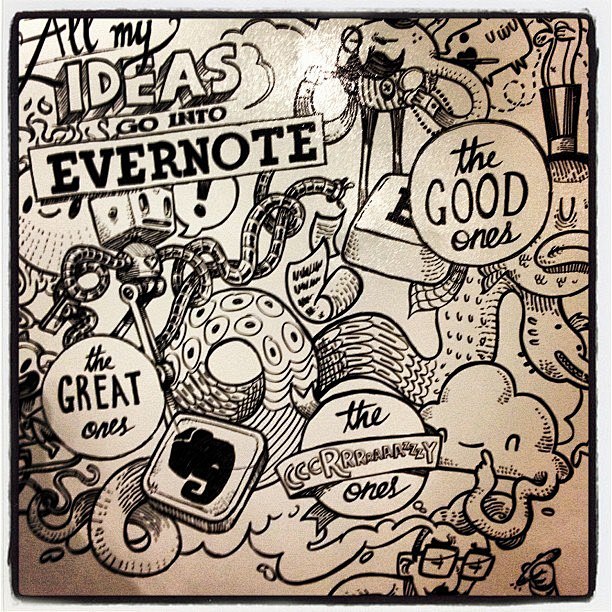 All my
IDEAS
GO INTO
EVERNOTE
!
the
GOOD
ones
the
GREAT
ones
the
CCCRRRRAAAZZZY
ones